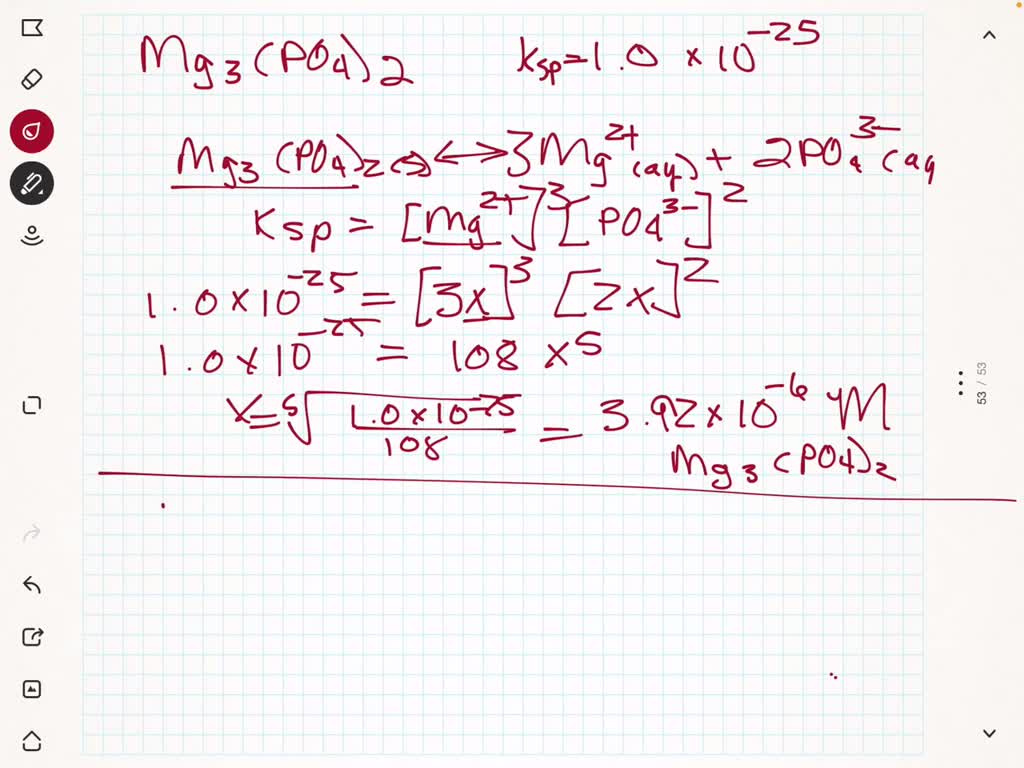 Mg3(PO4)2 Ksp=1.0 × 10^-25
Mg3(PO4)2(s) ↔ 3Mg^2+(aq) + 2PO4^3-(aq
Ksp = [Mg^2+]^3 [PO4^3-]^2
1.0 × 10^-25 = [3x]^3 [2x]^2
1.0 × 10^-25 = 108 x^5
x = ⁵√(1.0 × 10^-25 / 108) = 3.92 × 10^-6 M
Mg3(PO4)2
53 / 53